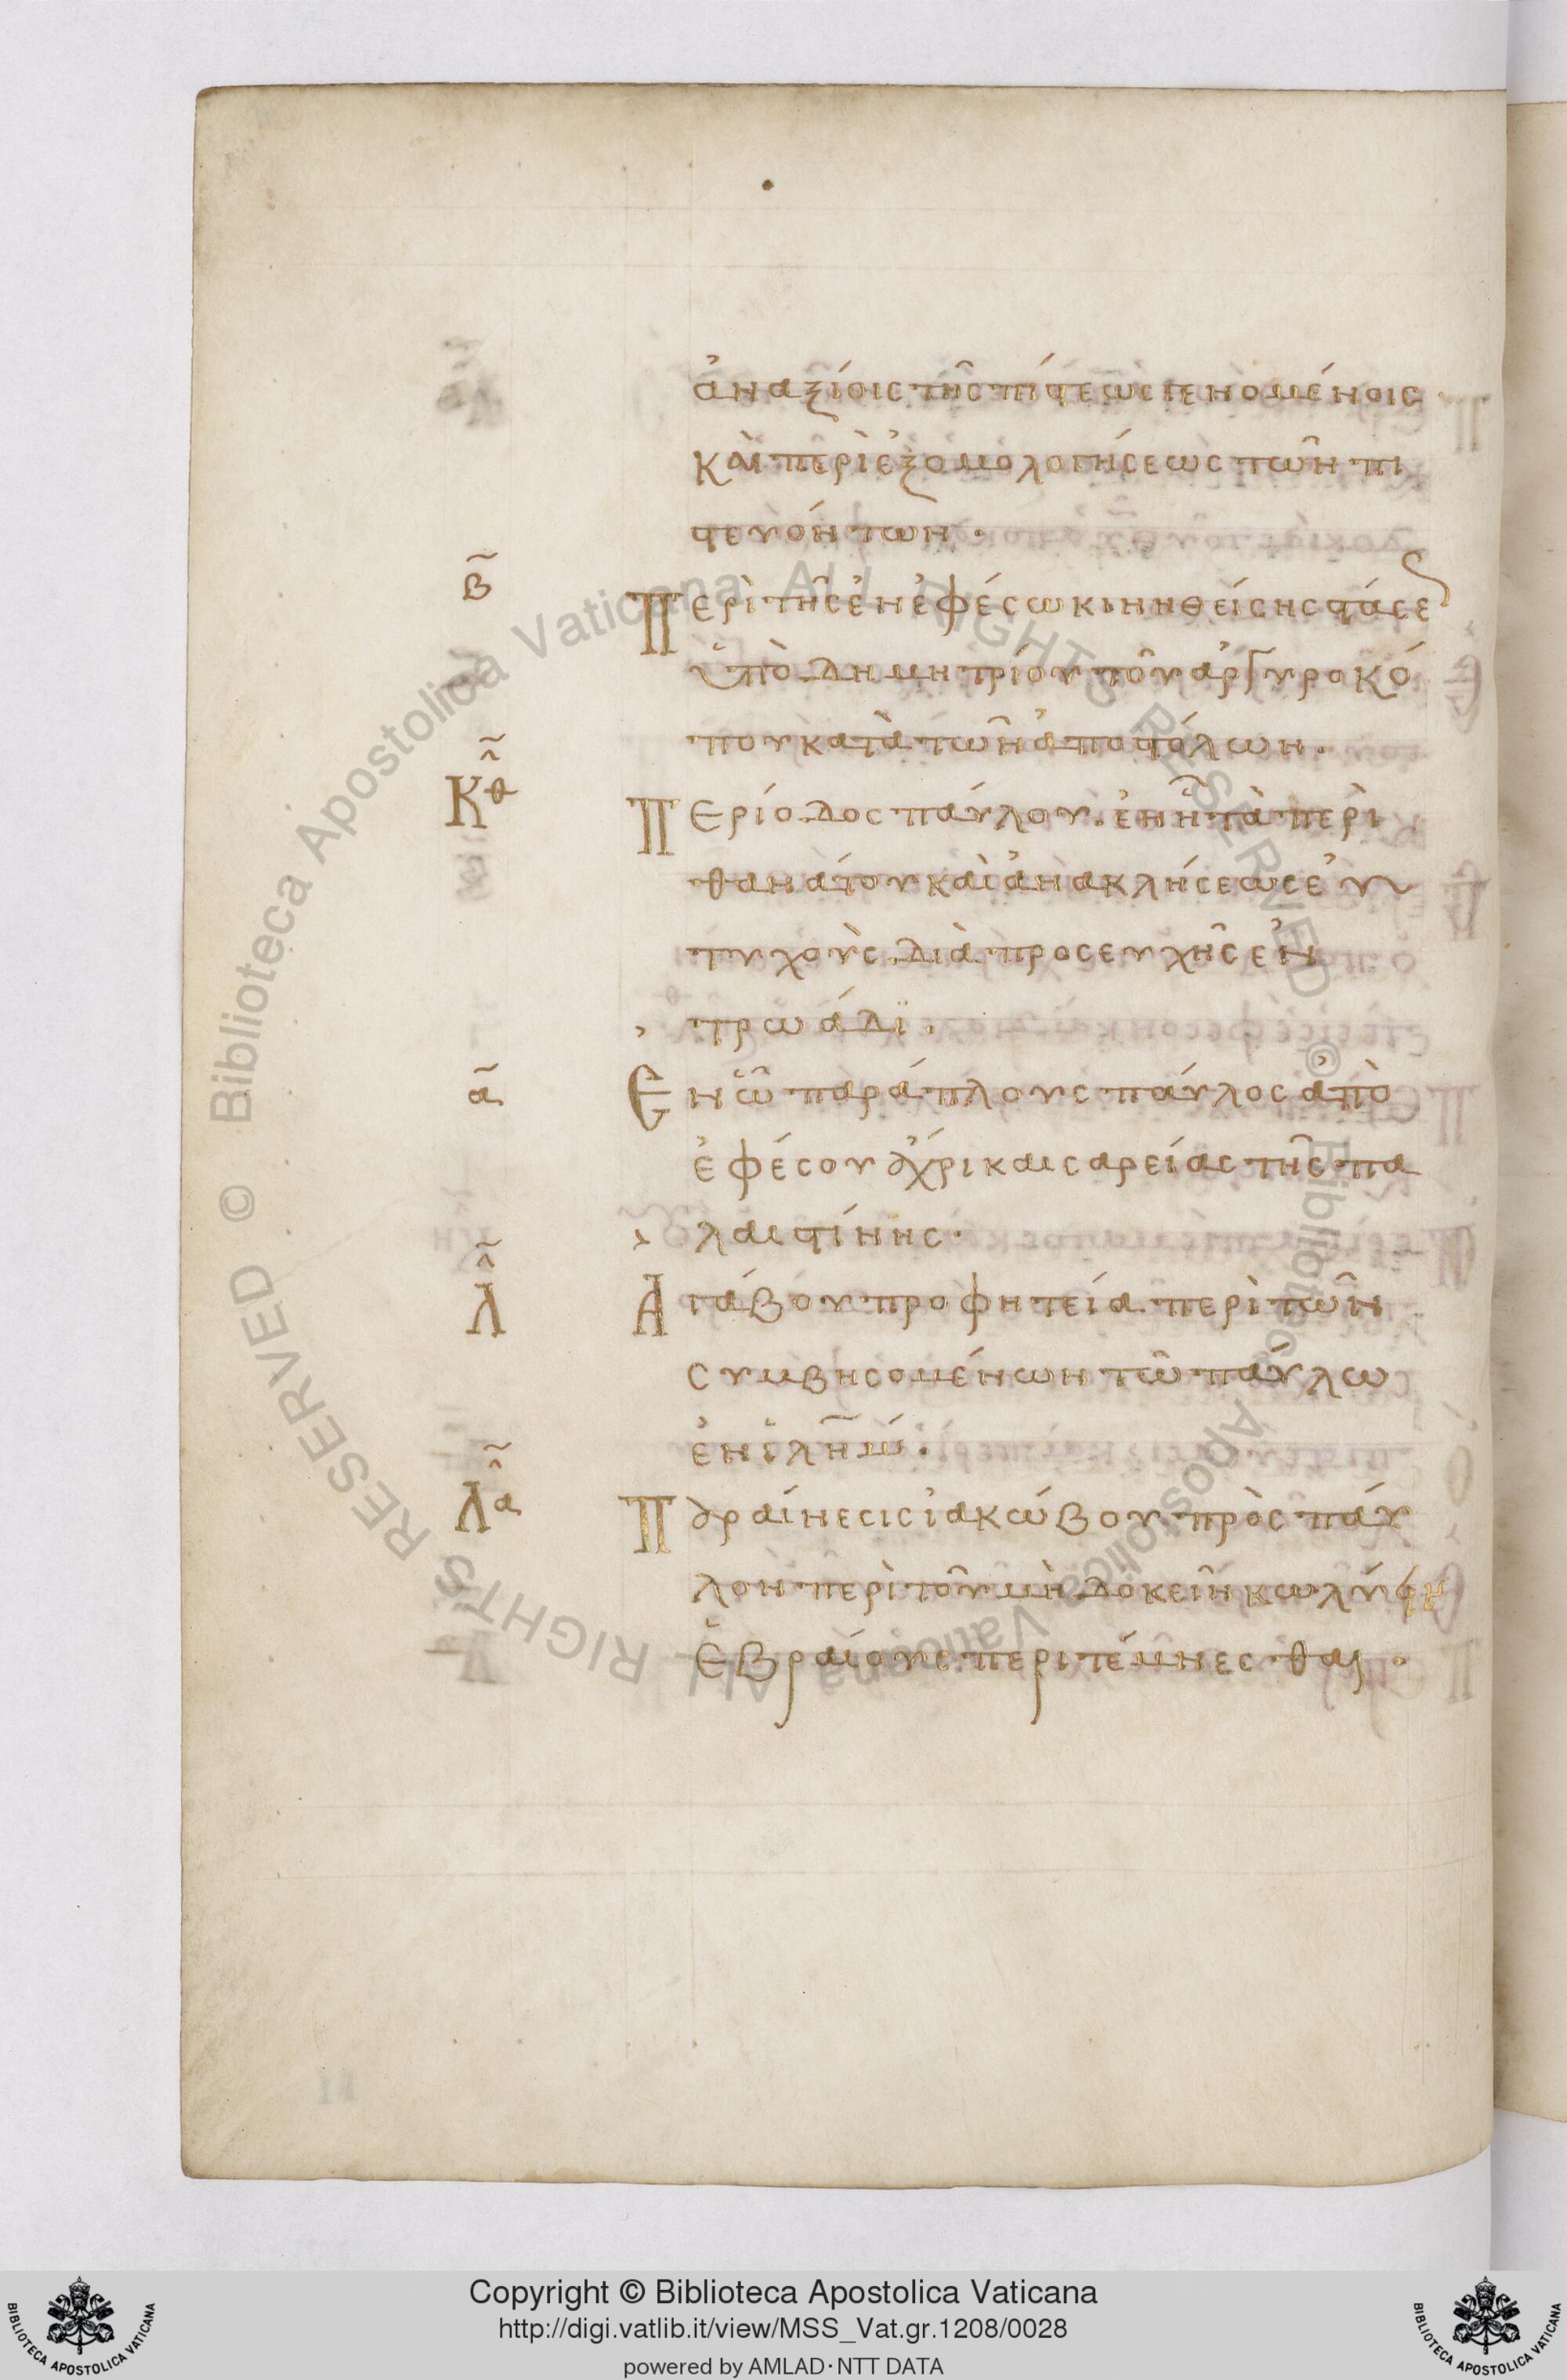 ἀναξίοις τῆς πίστεως γενομένοις.
καὶ περὶ ἐξομολογήσεως τῶν πι
στευόντων.
β Περὶ τῆς ἐν ἐφέσω κινηθείσης στάσε
ὑπὸ δημητρίου τοῦ ἀργυροκό
που κατὰ τῶν ἀποστόλων.
κθ Περίοδος παύλου. ἐν ῆ τὰ περὶ
θανάτου καὶ ἀνακλήσεως εὐ
τυχοὺς διὰ προσευχῆς ἐν
τρωάδϊ.
α Ἐν ὧ παράπλους παύλος ἀπὸ
ἐφέσου ἄχρι καισαρείας τῆς πα
λαιστίνης.
λ Ἀγάβου προφητεία περὶ τῶν
συμβησομένων τῶ παύλω
ἐν ἱλημ.
λα Παραίνεσις ἰακώβου πρὸς παύ
λον περὶ τοῦ μὴ δοκεῖν κωλύειν
ἑβραίους περιτέμνεσθαι.
Biblioteca Apostolica Vaticana ALL RIGHTS RESERVED © Biblioteca Apostolica Vaticana ALL RIGHTS RESERVED ©
Copyright © Biblioteca Apostolica Vaticana
http://digi.vatlib.it/view/MSS_Vat.gr.1208/0028
powered by AMLAD·NTT DATA
BIBLIOTECA APOSTOLICA VATICANA
BIBLIOTECA APOSTOLICA VATICANA